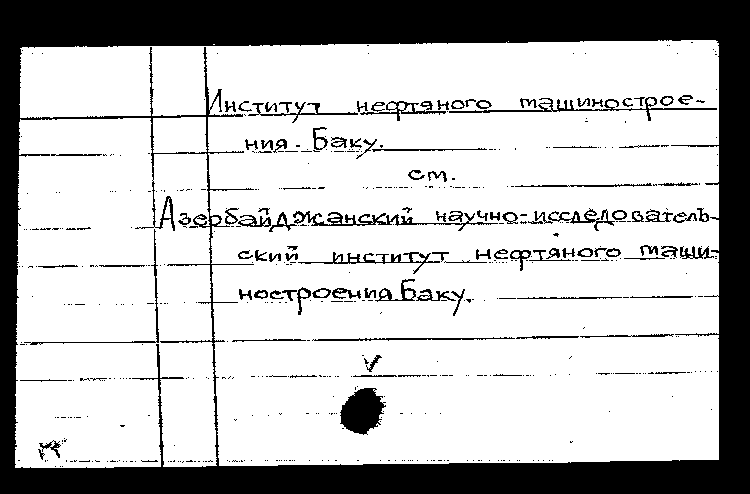 Институт нефтяного машинострое-
ния. Баку.
см.
Азербайджанский научно-исследователь-
ский институт нефтяного маши-
ностроения Баку.